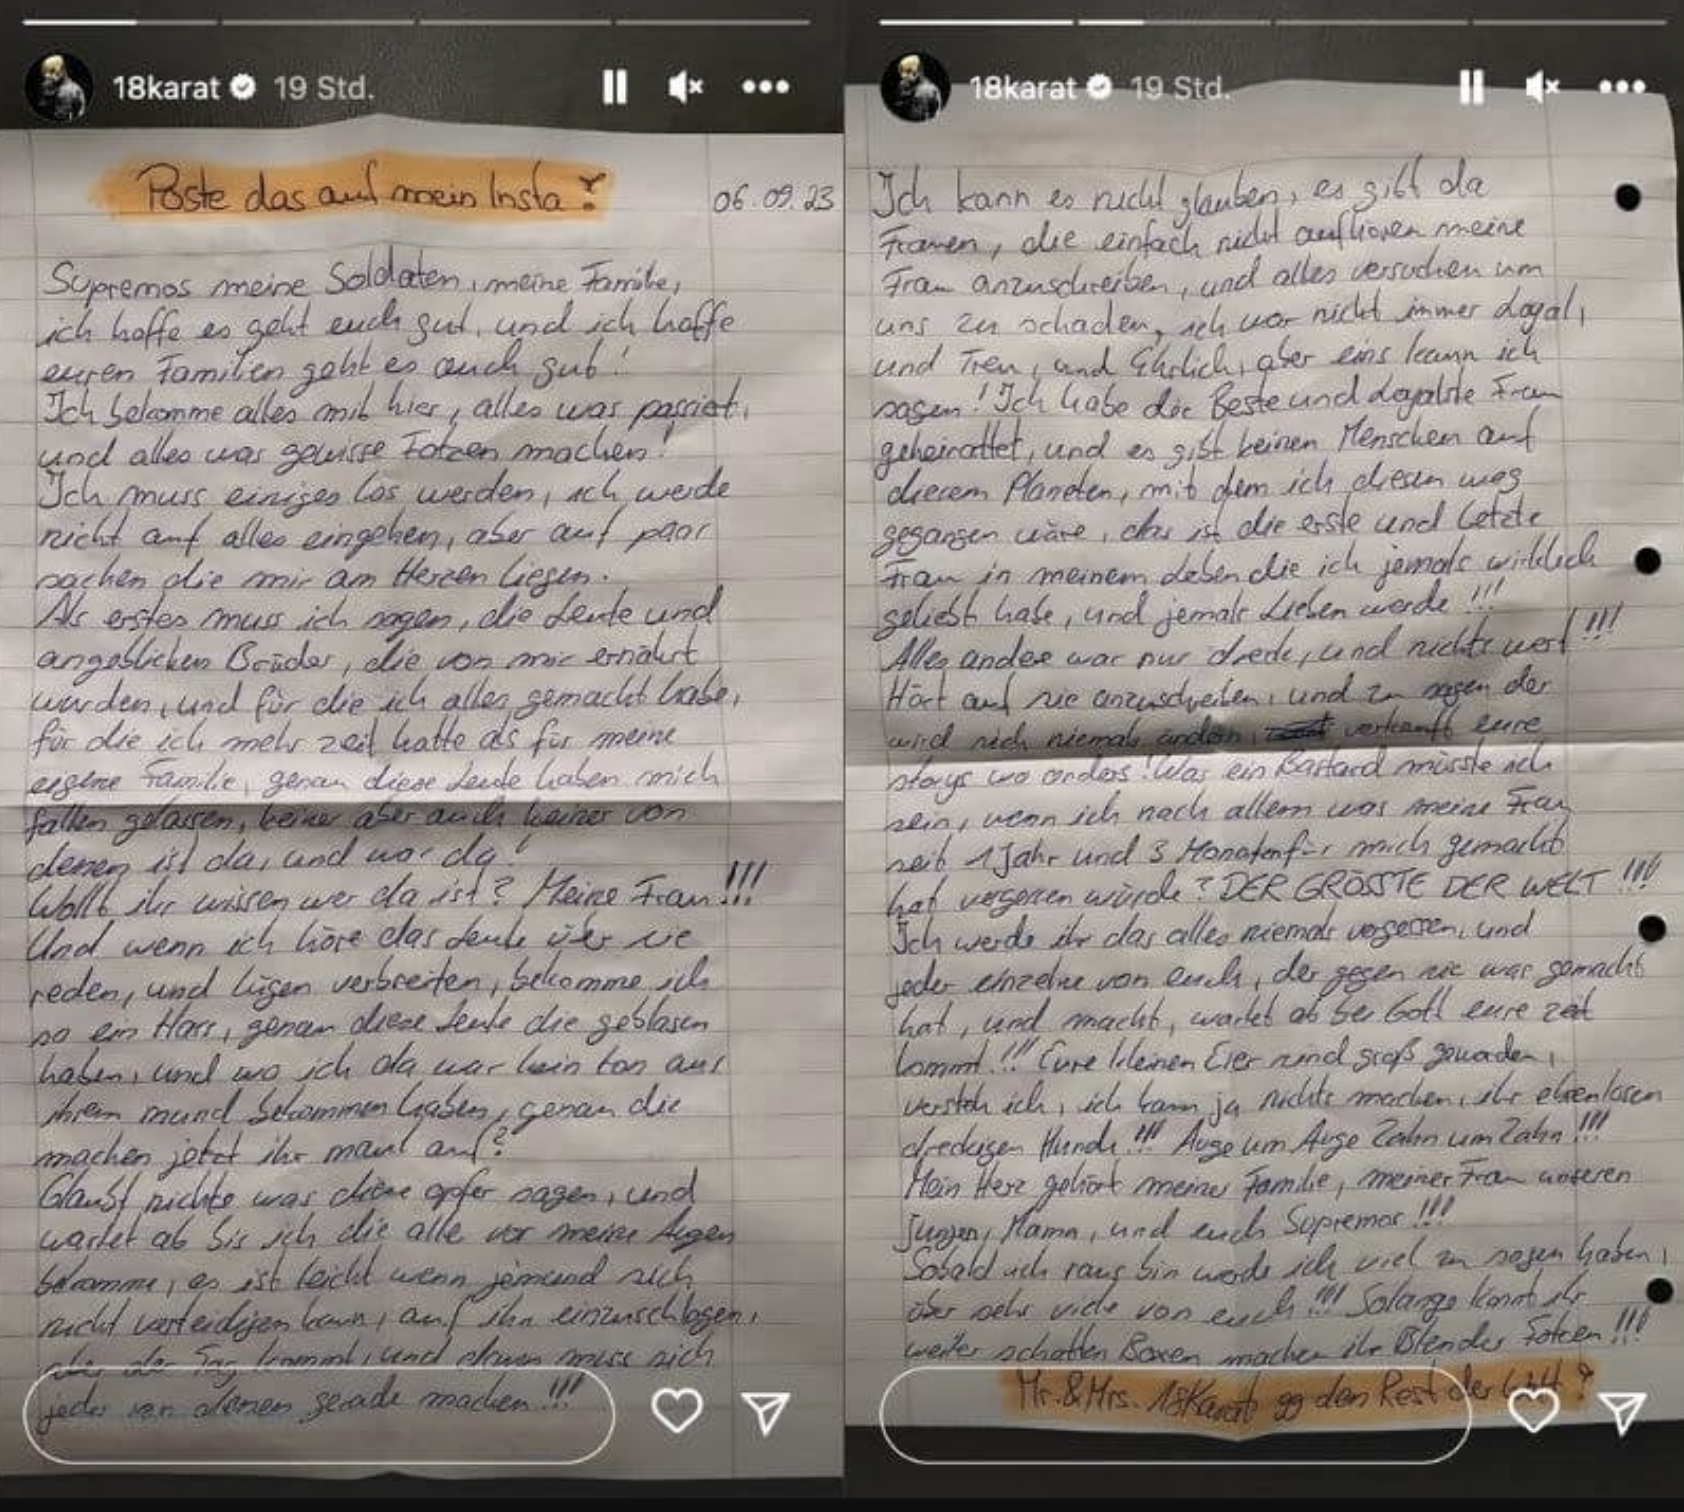 18karat 19 Std.
Poste das auf mein Insta!
06.09.23
Supremos meine Soldaten, meine Familie,
ich hoffe es geht euch gut, und ich hoffe
euren Familien geht es auch gut!
Ich bekomme alles mit hier, alles was passiert,
und alles was gewisse Fotzen machen!
Ich muss einiges los werden, ich werde
nicht auf alles eingehen, aber auf paar
sachen die mir am Herzen liegen.
Als erstes muss ich sagen, die Leute und
angeblichen Brüder, die von mir ernährt
wurden, und für die ich alles gemacht habe,
für die ich mehr zeit hatte als für meine
eigene Familie, genau diese Leute haben mich
fallen gelassen, keiner aber auch keiner von
denen ist da, und war da!
Wollt ihr wissen wer da ist? Meine Frau!!!
Und wenn ich höre das Leute über sie
reden, und lügen verbreiten, bekomme ich
so ein Hass, genau diese Leute die geblasen
haben, und wo ich da war kein ton aus
ihrem mund bekommen haben, genau die
machen jetzt ihr maul auf?
Glaubt nichts was diese opfer sagen, und
wartet ab bis ich die alle vor meine Augen
bekomme, es ist leicht wenn jemand sich
nicht verteidigen kann, auf ihn einzuschlagen,
aber der Tag kommt, und dann muss sich
jeder von denen gerade machen!!!
18karat 19 Std.
Ich kann es nicht glauben, es gibt da
Frauen, die einfach nicht aufhören meine
Frau anzuschreiben, und alles versuchen um
uns zu schaden, ich war nicht immer Loyal,
und Treu, und Ehrlich, aber eins kann ich
sagen! Ich habe die Beste und Loyalste Frau
geheirattet, und es gibt keinen Menschen auf
diesem Planeten, mit dem ich diesen weg
gegangen wäre, das ist die erste und Letzte
Frau in meinem Leben die ich jemals wirklich
geliebt habe, und jemals Lieben werde!!!
Alles andere war nur dreck, und nichts wert!!!
Hört auf sie anzuschreiben, und zu sagen der
wird sich niemals ändern, verkauft eure
storys wo anders! Was ein Bastard müsste ich
sein, wenn ich nach allem was meine Frau
seit 1 Jahr und 3 Monaten für mich gemacht
hat vergessen würde? DER GRÖSSTE DER WELT!!!
Ich werde ihr das alles niemals vergessen, und
jeder einzelne von euch, der gegen sie was gemacht
hat, und macht, wartet ab bei Gott eure zeit
kommt!!! Eure kleinen Eier sind groß geworden,
versteh ich, ich kann ja nichts machen, ihr ehrenlosen
dreckigen Hunde!!! Auge um Auge Zahn um Zahn!!!
Mein Herz gehört meiner Familie, meiner Frau unseren
Jungen, Mama, und euch Supremos!!!
Sobald ich raus bin werde ich viel zu sagen haben,
über sehr viele von euch!!! Solange könnt ihr
weiter schatten Boxen machen ihr Blender Fotzen!!!
Mr.&Mrs. 18Karat gg den Rest der Welt!